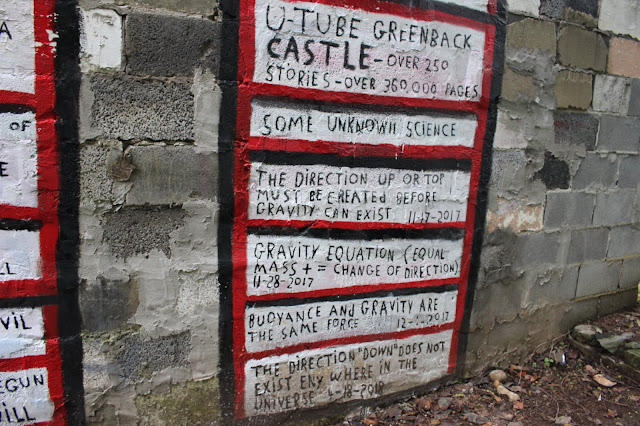 A
OF
E
ILL
VIL
EGUN
ILL
U-TUBE GREENBACK
CASTLE - OVER 250
STORIES - OVER 360,000 PAGES
SOME UNKNOWN SCIENCE
THE DIRECTION UP OR TOP
MUST BE CREATED BEFORE
GRAVITY CAN EXIST 11-17-2017
GRAVITY EQUATION (EQUAL
MASS + = CHANGE OF DIRECTION)
11-28-2017
BUOYANCE AND GRAVITY ARE
THE SAME FORCE
THE DIRECTION "DOWN" DOES NOT
EXIST ENY WHERE IN THE
UNIVERSE